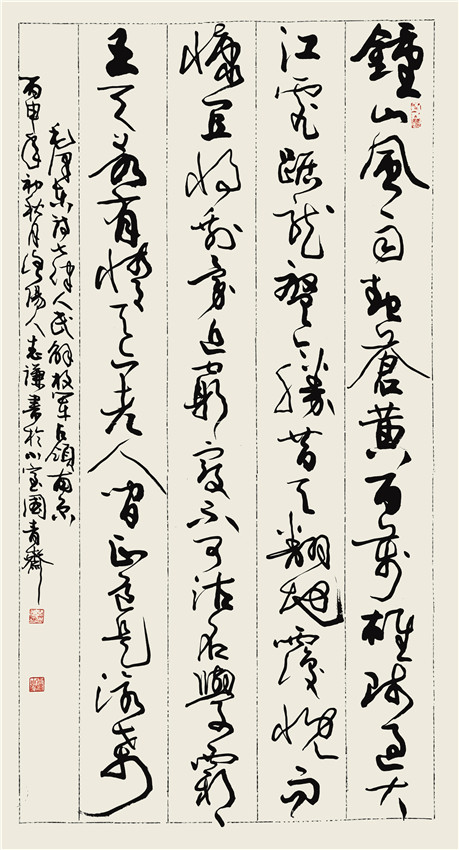 鍾山風雨起蒼黄百萬雄師過大
江虎踞龍盤今勝昔天翻地覆慨而
慷宜将剩勇追窮寇不可沽名學霸
王天若有情天亦老人間正道是滄桑
毛澤東詩七律人民解放軍占領南京
丙申年初秋月陽人志謙書於室青齋